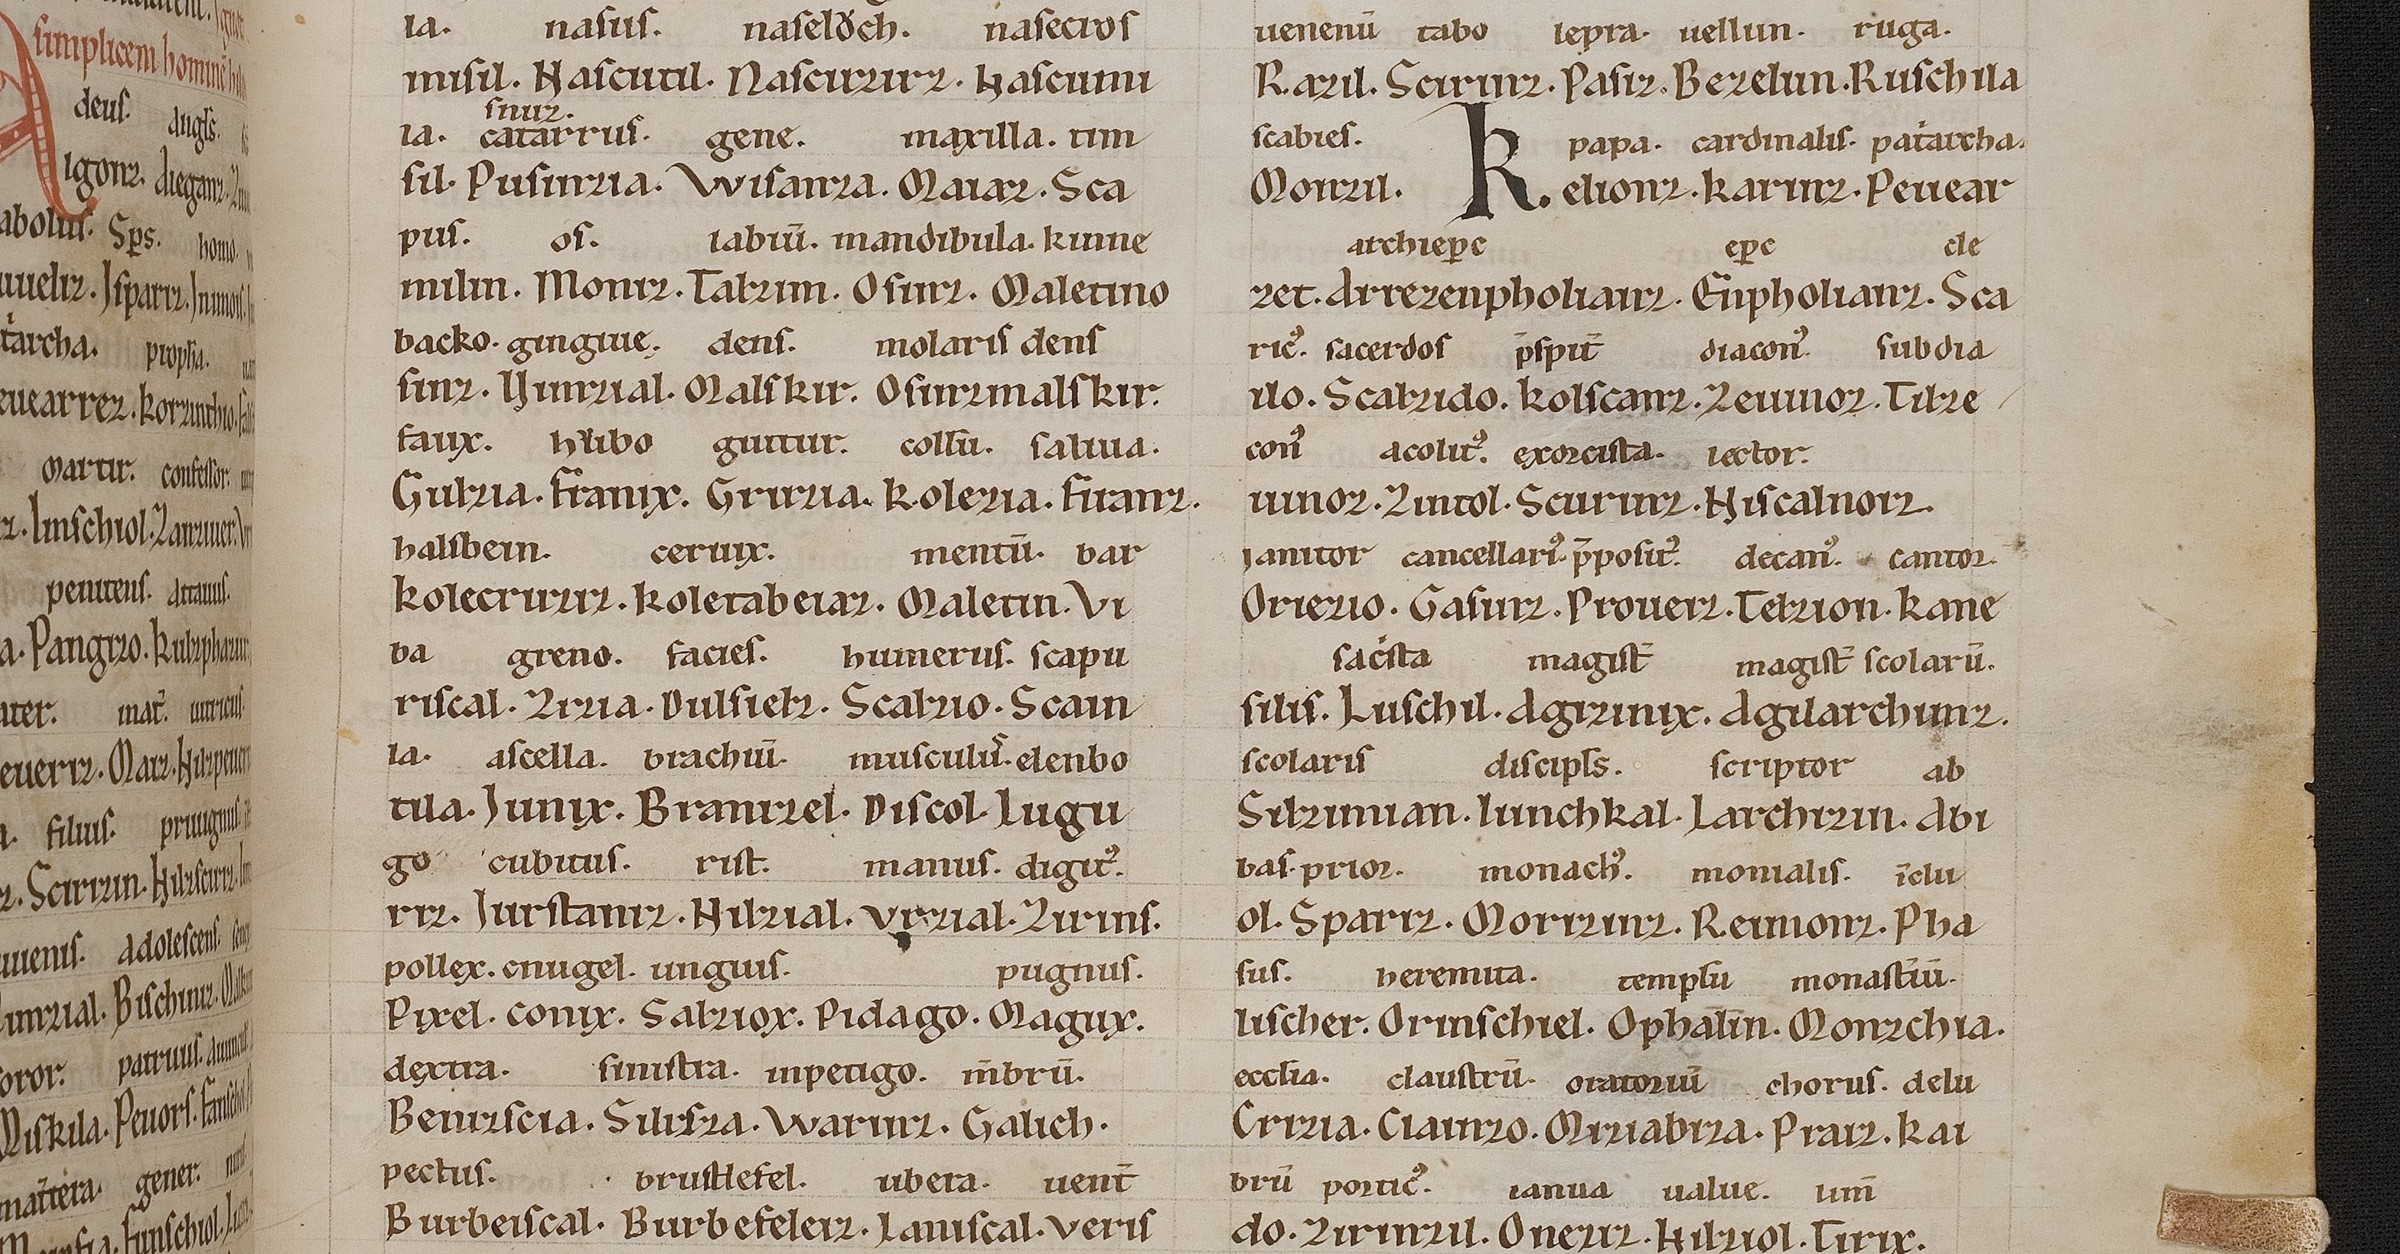 simplicem hominē
deus. angls.
Aigonz. dieganz.
abolus. Sp̄s. homo.
uueliz. Jsparriz. Jnimois.
tarcha. propha.
euearrez. korzinthio.
martir. confessor.
z. linschiol. Zanziuer.
penitens. attauus.
a. Pangizo. Kulzphazur
ater. mat̄. uitricus.
euerriz. Maiz. Hilzpeueriz
filius. priuignus.
z. Scirizin. Hilzscifriz.
iuuenis. adolescens.
unzial. Bischiniz.
soror. patruus.
Miskila. Peuors.
matt̄era. gener.
funschol.
la. nasus. naseloch. nasecros
misil. Nascutil. Nascuzuz. Nascumi
snuz.
la. catarrus. gene. maxilla. tim
sil. Pusinzia. Wisanza. Maiaz. Sca
pus. os. labiū. mandibula. kinne
nilin. Moniz. Talzim. Osinz. Maletino
backo. gingiue. dens. molaris dens
sinz. Hunzial. Malskir. Osinzmalskir.
faux. hubo guttur. collū. saliua.
Gulzia. Franix. Gruzia. Kolezia. Firanz.
halsbein. ceruix. mentū. bar
kolecruziz. koletabeiaz. Maletin. Vi
ba greno. facies. humerus. scapu
riscal. Zizia. Dulsielz. Scalzio. Scain
la. ascella. brachiū. musculus. elenbo
tila. Junix. Branizel. Discol. Lugu
go cubitus. rist. manus. digit᾽.
riz. Jurstaniz. Nilzial. Vrzial. Zirins.
pollex. cnugel. unguis. pugnus.
Pixel. Conix. Salziox. Pidago. Magux.
dextra. sinistra. inpetigo. m̄brū.
Benizscia. Silisza. Warinz. Galich.
pectus. brustlefel. ubera. uent̄
Burbeiscal. Burbefeleiz. Laniscal. Veris
uenenū tabo lepra. uellun. ruga.
Razil. Scirinz. Pasiz. Bezelun. Ruschila
scabies. papa. cardinalis. patarcha.
Monzil. K. elionz. karinz. Peuear
archiepc epc cle
zet. Arrezenpholianz. Enpholianz. Sca
ric᾽. sacerdos p̄sbit̄ diacon᾽. subdia
ilo. Scalzido. kolscanz. Zeuuioz. Tilze
con᾽ acolit᾽. exorcista. lector.
uinoz. Zintol. Scurinz. Hiscalnoiz.
Janitor cancellari᾽. p̄posit᾽. decan᾽. cantor.
Oriezio. Gasurz. Proueiz. Telzion. Kane
sacista magist̄ magist̄ scolarū.
silis. Luschil. Agizinix. Agilarchinz.
scolaris discipls. scriptor ab
Silzimian. Iunchkal. Larchizin. Abi
bas. prior. monach᾽. monialis. īclu
ol. Spariz. Morizinz. Reimonz. Pha
sus. heremita. templū monast̄iū.
lischer. Orinschiel. Ophalin. Monzchia.
ecclia. claustrū. oratoriū chorus. delu
Crizia. Ciainzo. Miziabiza. Praiz. Kai
brū portic᾽. ianua ualue. lim̄
do. Zirinzil. Oneziz. Hilziol. Tirix.